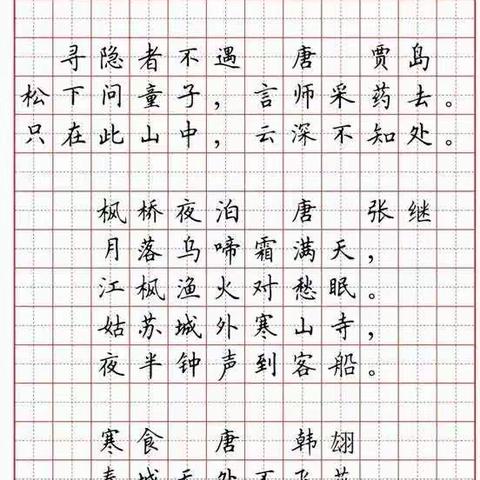 寻隐者不遇 唐 贾岛
松下问童子，言师采药去。
只在此山中，云深不知处。
枫桥夜泊 唐 张继
月落乌啼霜满天，
江枫渔火对愁眠。
姑苏城外寒山寺，
夜半钟声到客船。
寒食 唐 韩翃
春城无处不飞花